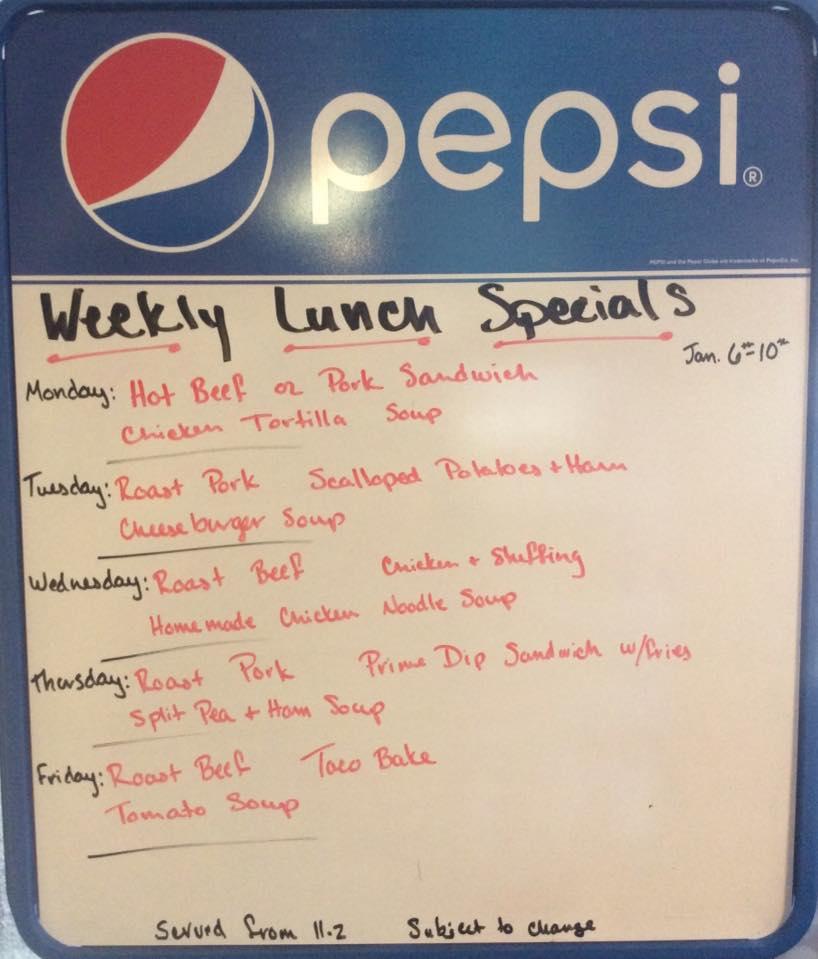 pepsi®
PEPSI and the Pepsi Globe are trademarks of PepsiCo, Inc.
Weekly Lunch Specials
Jan. 6th-10th
Monday: Hot Beef or Pork Sandwich
Chicken Tortilla Soup
Tuesday: Roast Pork Scalloped Potatoes + Ham
Cheeseburger Soup
Wednesday: Roast Beef Chicken + Stuffing
Homemade Chicken Noodle Soup
Thursday: Roast Pork Prime Dip Sandwich w/fries
Split Pea + Ham Soup
Friday: Roast Beef Taco Bake
Tomato Soup
Served from 11-2 Subject to change